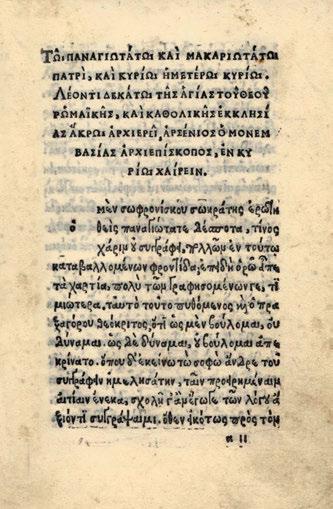 ΤΩΙ ΠΑΝΑΓΙΩΤΑΤΩΙ ΚΑΙ ΜΑΚΑΡΙΩΤΑΤΩΙ
ΠΑΤΡΙ, ΚΑΙ ΚΥΡΙΩΙ ΗΜΕΤΕΡΩΙ ΚΥΡΙΩΙ.
ΛΕΟΝΤΙ ΔΕΚΑΤΩΙ ΤΗΣ ΑΓΙΑΣ ΤΟΥ ΘΕΟΥ
ΡΩΜΑΪΚΗΣ, ΚΑΙ ΚΑΘΟΛΙΚΗΣ ΕΚΚΛΗΣΙ
ΑΣ ΑΚΡΩΙ ΑΡΧΙΕΡΕΙ, ΑΡΣΕΝΙΟΣ Ο ΜΟΝΕΜ
ΒΑΣΙΑΣ ΑΡΧΙΕΠΙΣΚΟΠΟΣ, ΕΝ ΚΥ
ΡΙΩΙ ΧΑΙΡΕΙΝ.
μὲν σωφρονίσκου σωκράτης ἐρωτη
ὁ θεὶς παναγιώτατε δέσποτα, τίνος
χάριν οὐ συγγράφει, τῶν ἄλλων ἐν τούτω
καταβαλλομένων φροντίδα, ἐπειδὴ ὁρῶ ἀπε
τὰ χαρτία, πολὺ τῶν γραφησομένων γε, τι
μιώτερα, ταυτὸ τοῦτο πυθόμενος κỳ ὁ πρα
ξαγόρου θεόκριτος, ὅτι ὡς μὲν βούλομαι, οὐ
δύναμαι. ὡς δὲ δύναμαι, οὐ βούλομαι ἀπε
κρίνατο. ὅπου δ' ἐκείνω τὼ σοφὼ ἄνδρε τοῦ
συγγράφειν ἠμελησάτην, ταῖν προειρημέναιν
αἰτίαιν ἕνεκα, σχολῇ γ' ἂν ἔγωγε τῶν λόγου ἀ
ξιόν τι συγγράψαιμι. ὅθεν εἰκότως πρὸς τὸν
α ΙΙ